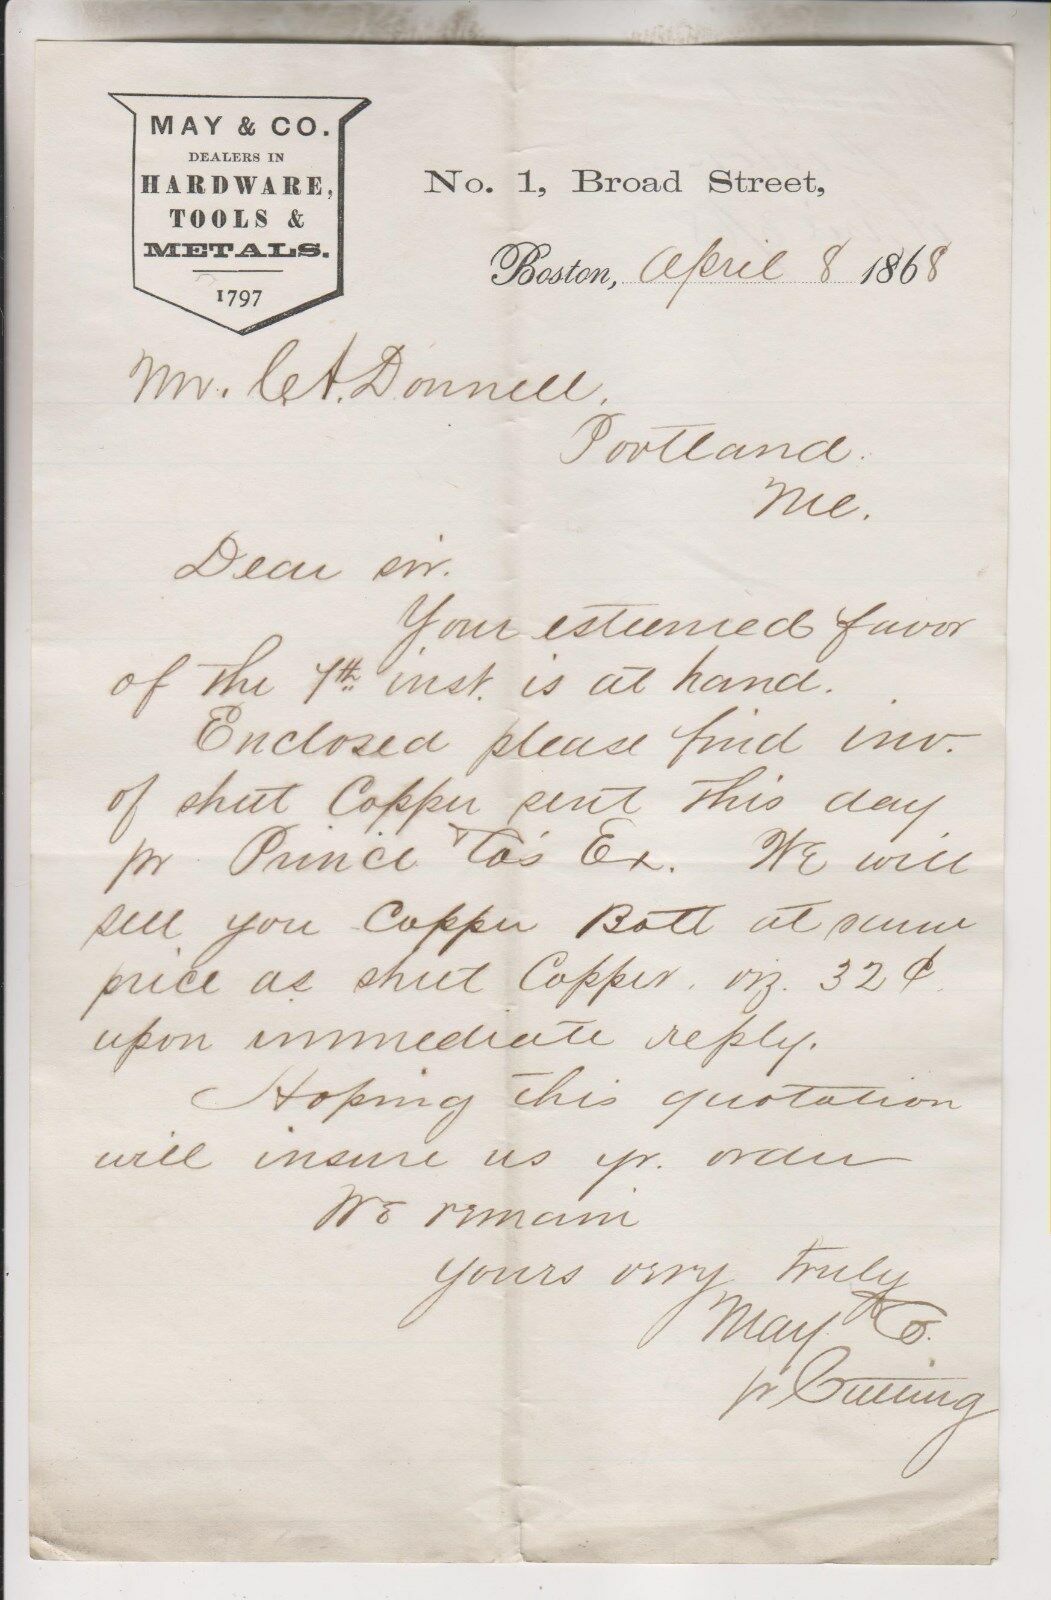 MAY & CO.
DEALERS IN
HARDWARE,
TOOLS &
METALS.
1797
No. 1, Broad Street,
Boston, April 8 1868
Mr. C. A. Donnell,
Portland.
Me.
Dear sir.
Your esteemed favor
of the 7th inst. is at hand.
Enclosed please find inv.
of sheet Copper sent this day
pr Prince & Co's Ex. We will
sell you Copper Bolt at same
price as sheet Copper. viz. 32 ¢
upon immediate reply.
Hoping this quotation
will insure us yr. order
We remain
yours very truly
May & Co.
pr